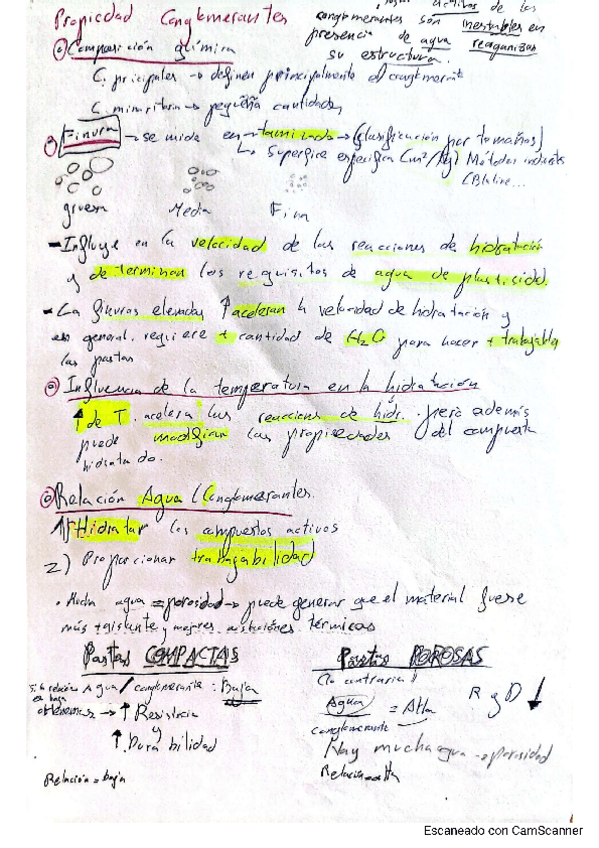 activos de los
Propiedad Conglomerantes
conglomerantes son inestables en
presencia de agua reaganizan
su estructura.
Composición química
C. principales → definen principalmente el conglomerante
C. minoritarios → pequeña cantidades
Finura → se mide en → tamizado → (clasificación por tamaños)
↳ Superficie especifica (m²/kg) Métodos
(Blaine...
gruesa Media Fina
- Influye en la velocidad de las reacciones de hidratación
y determinan los requisitos de agua de plasticidad.
- La finuras elevadas ↑ aceleran la velocidad de hidratación y
en general, requiere + cantidad de H₂O para hacer + trabajable
las pastas
Influencia de la temperatura en la hidratación
↑ de T. acelera las reacciones de hidr. pero además
puede modifican las propiedades del compuesto
hidratado.
Relación Agua / Conglomerantes.
1) Hidratar los compuestos activos
2) Proporcionar trabajabilidad
• Mucha agua = porosidad → puede generar que el material fuese
más aislante y mejores térmicas
Pastas COMPACTAS
Pastas POROSAS
Si la relación Agua / conglomerante : Baja
es baja
obtenemos → ↑ Resistencia
↑ Durabilidad
Relación = baja
(lo contrario)
Agua = Alta R y D ↓
conglomerante
Hay mucha agua → porosidad
Relación = alta
Escaneado con CamScanner